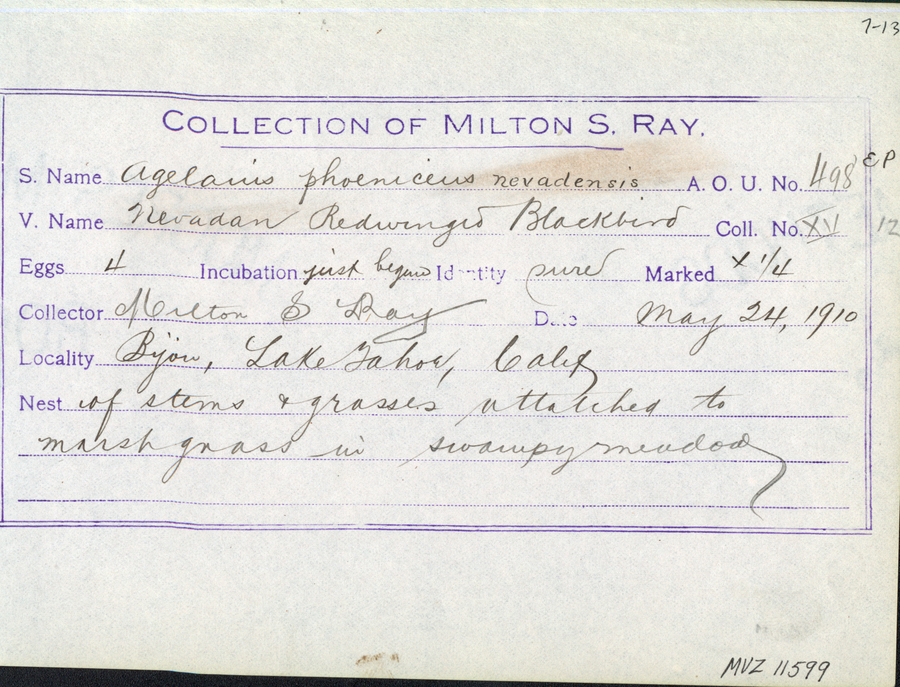 7-13
COLLECTION OF MILTON S. RAY.
S. Name Agelaius phoeniceus nevadensis A. O. U. No. 498 EP
V. Name Nevadan Redwinged Blackbird Coll. No. XV 12
Eggs 4 Incubation just begun Identity sured Marked x 1/4
Collector Milton S Ray Date May 24, 1910
Locality Bijou, Lake Tahoe, Calif
Nest of stems & grasses attatched to
marsh grass in swampy meadow
MVZ 11599